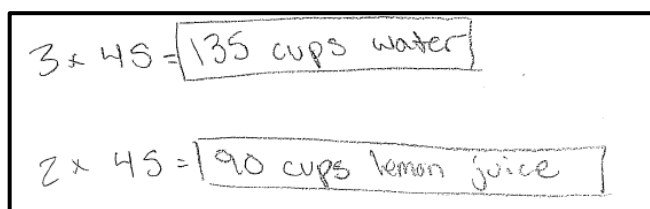 3 × 45 = 135 cups water
2 × 45 = 90 cups lemon juice